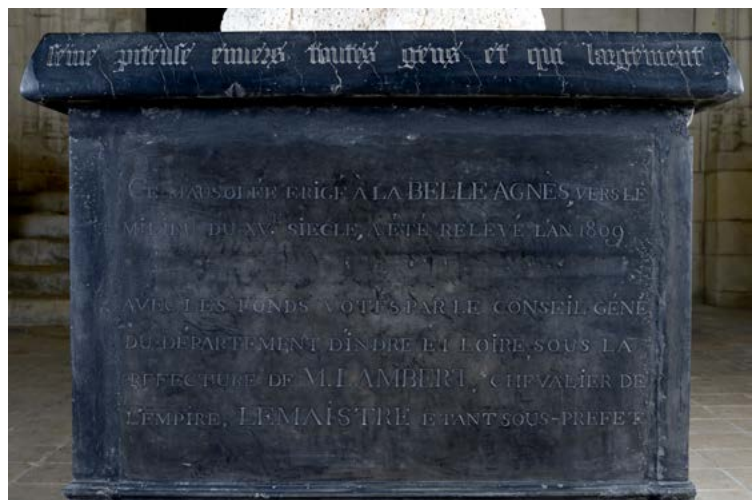 seine piteuse enuers toutes gens et qui largement
CE MAUSOLÉE ERIGÉ À LA BELLE AGNÈS, VERS LE
MILIEU DU XVᴱ SIÈCLE, A ÉTÉ RELEVÉ L'AN 1809
AVEC LES FONDS VOTÉS PAR LE CONSEIL GÉNÉ
DU DÉPARTEMENT D'INDRE ET LOIRE, SOUS LA
PREFECTURE DE M. LAMBERT, CHEVALIER DE
L'EMPIRE, LEMAISTRE ETANT SOUS-PREFET